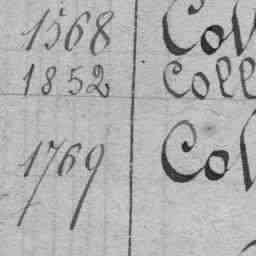 1568 Col
1852 Coll
1769 Col